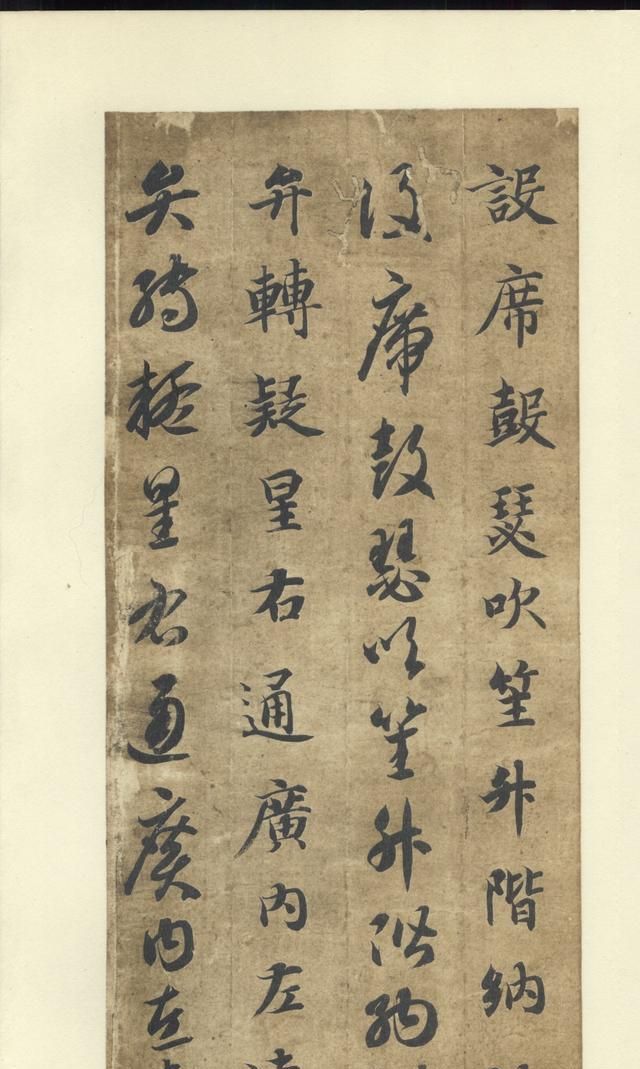 設席鼓瑟吹笙升階納
設席鼓瑟吹笙升階納
弁轉疑星右通廣內左
弁轉疑星右通廣內左